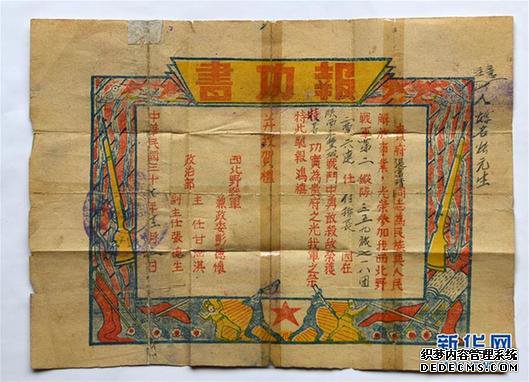 報功書
貴府張富清同志為民族與人民
解放事業,光榮參加我西北野
戰軍第二縱隊三五九旅七一八團
六連 任 排長 因在
陝西 戰鬥中勇敢殺敵榮獲
特等 功實為貴府之光我軍之榮
特此馳報 鴻禧
並致賀禮
西北野戰軍
兼政委彭德懷
政治部
主任甘泗淇
副主任張德生
中華民國三十七年十二月 日
新华网
织梦内容管理系统